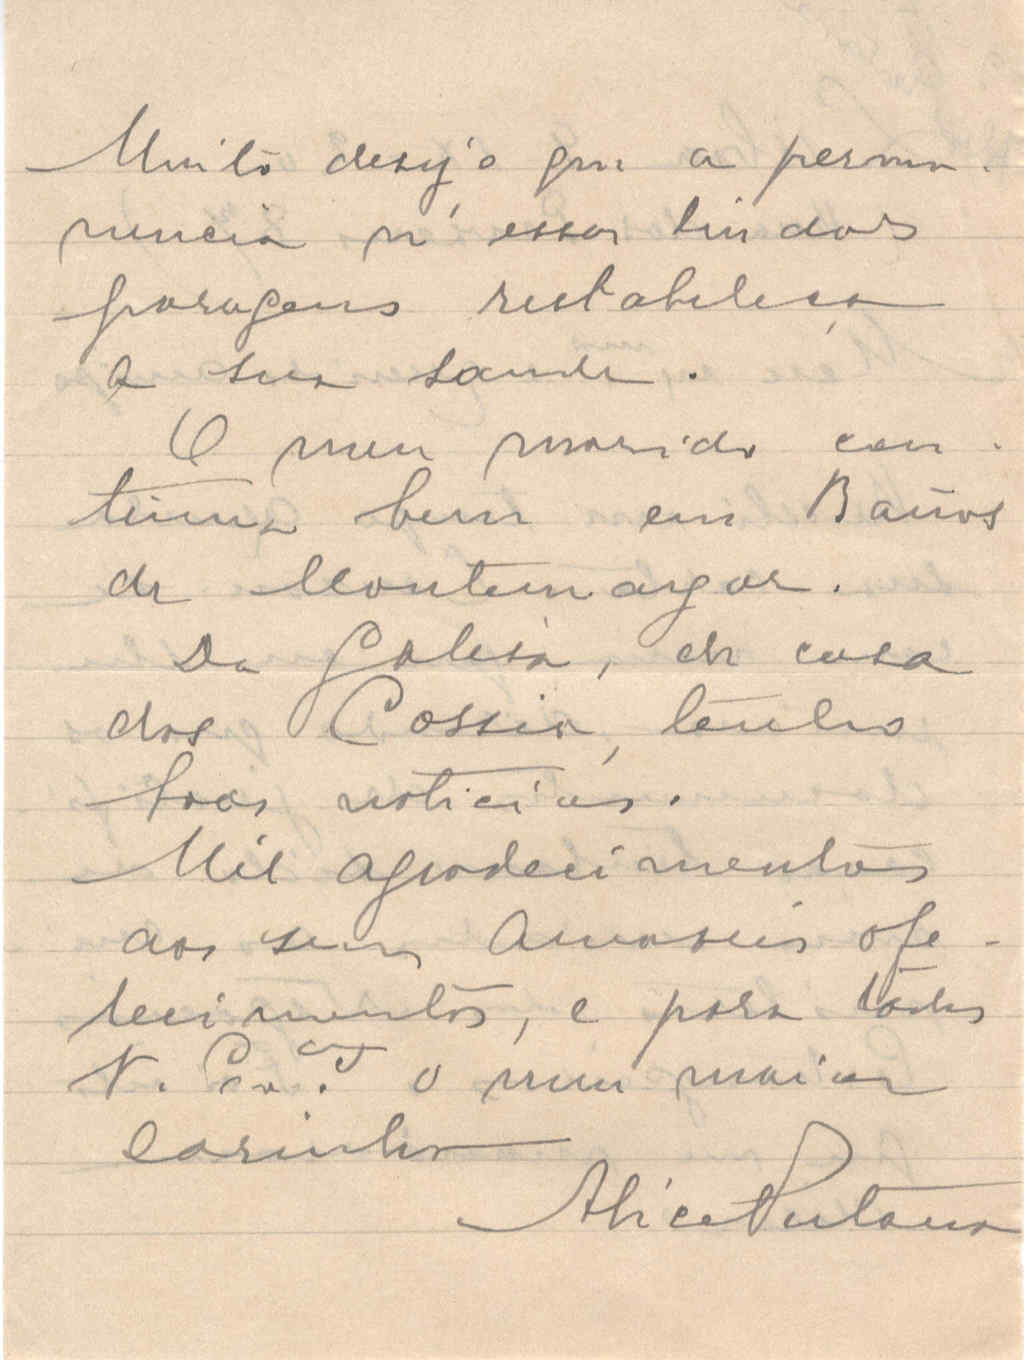 Muito desejo que a perma-
nencia n'essas lindas
paragens restabeleça
a sua saude.
O meu marido con-
tinua bem em Baños
de Montemayor.
Da Galisa, de casa
dos Cossio, tenho
boas noticias.
Mil agradecimentos
aos seus amaveis ofe-
recimentos, e para todos
V. Ex.as o meu maior
carinho
Alice Pestana